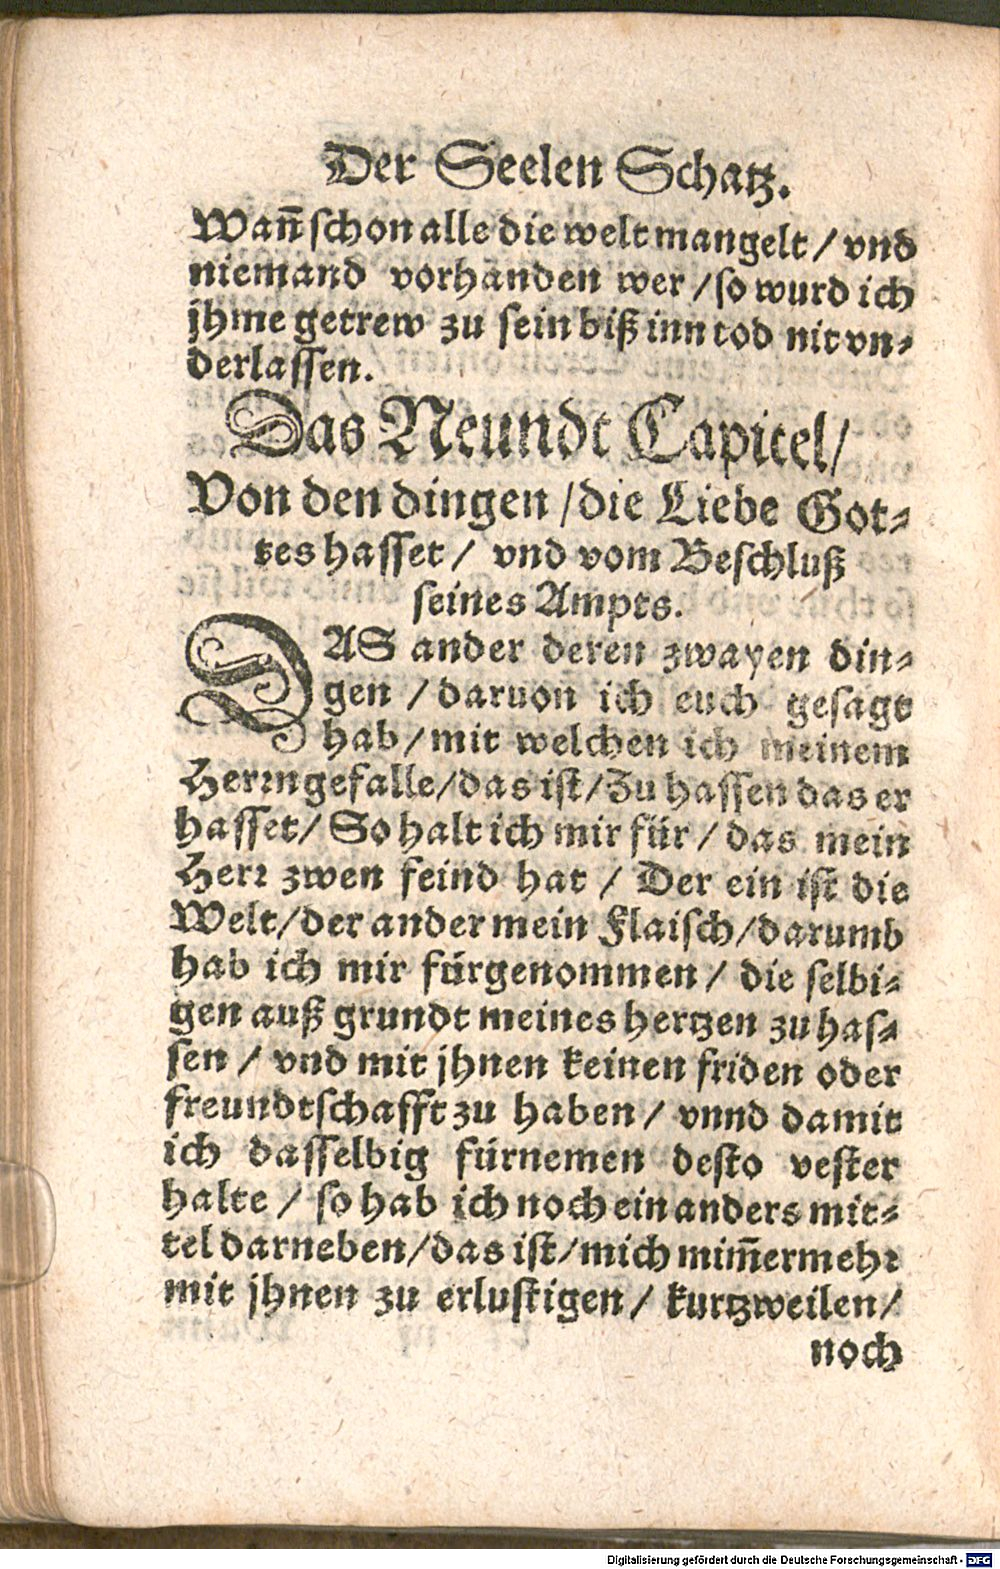 Der Seelen Schatz.
Wañ schon alle die welt mangelt / vnd
niemand vorhanden wer / so wurd ich
jhme getrew zu sein biß inn tod nit vn-
derlassen.
Das Neundt Capitel /
Von den dingen / die Liebe Got-
tes hasset / vnd vom Beschluß
seines Ampts.
DAS ander deren zwayen din-
gen / daruon ich euch gesagt
hab / mit welchen ich meinem
Herrn gefalle / das ist / Zu hassen das er
hasset / So halt ich mir für / das mein
Herr zwen feind hat / Der ein ist die
Welt / der ander mein Flaisch / darumb
hab ich mir fürgenommen / die selbi-
gen auß grundt meines hertzen zu has-
sen / vnd mit jhnen keinen friden oder
freundtschafft zu haben / vnnd damit
ich dasselbig fürnemen desto vester
halte / so hab ich noch ein anders mit-
tel darneben / das ist / mich mim̄ermehr
mit jhnen zu erlustigen / kurtzweilen /
noch
Digitalisierung gefördert durch die Deutsche Forschungsgemeinschaft - DFG